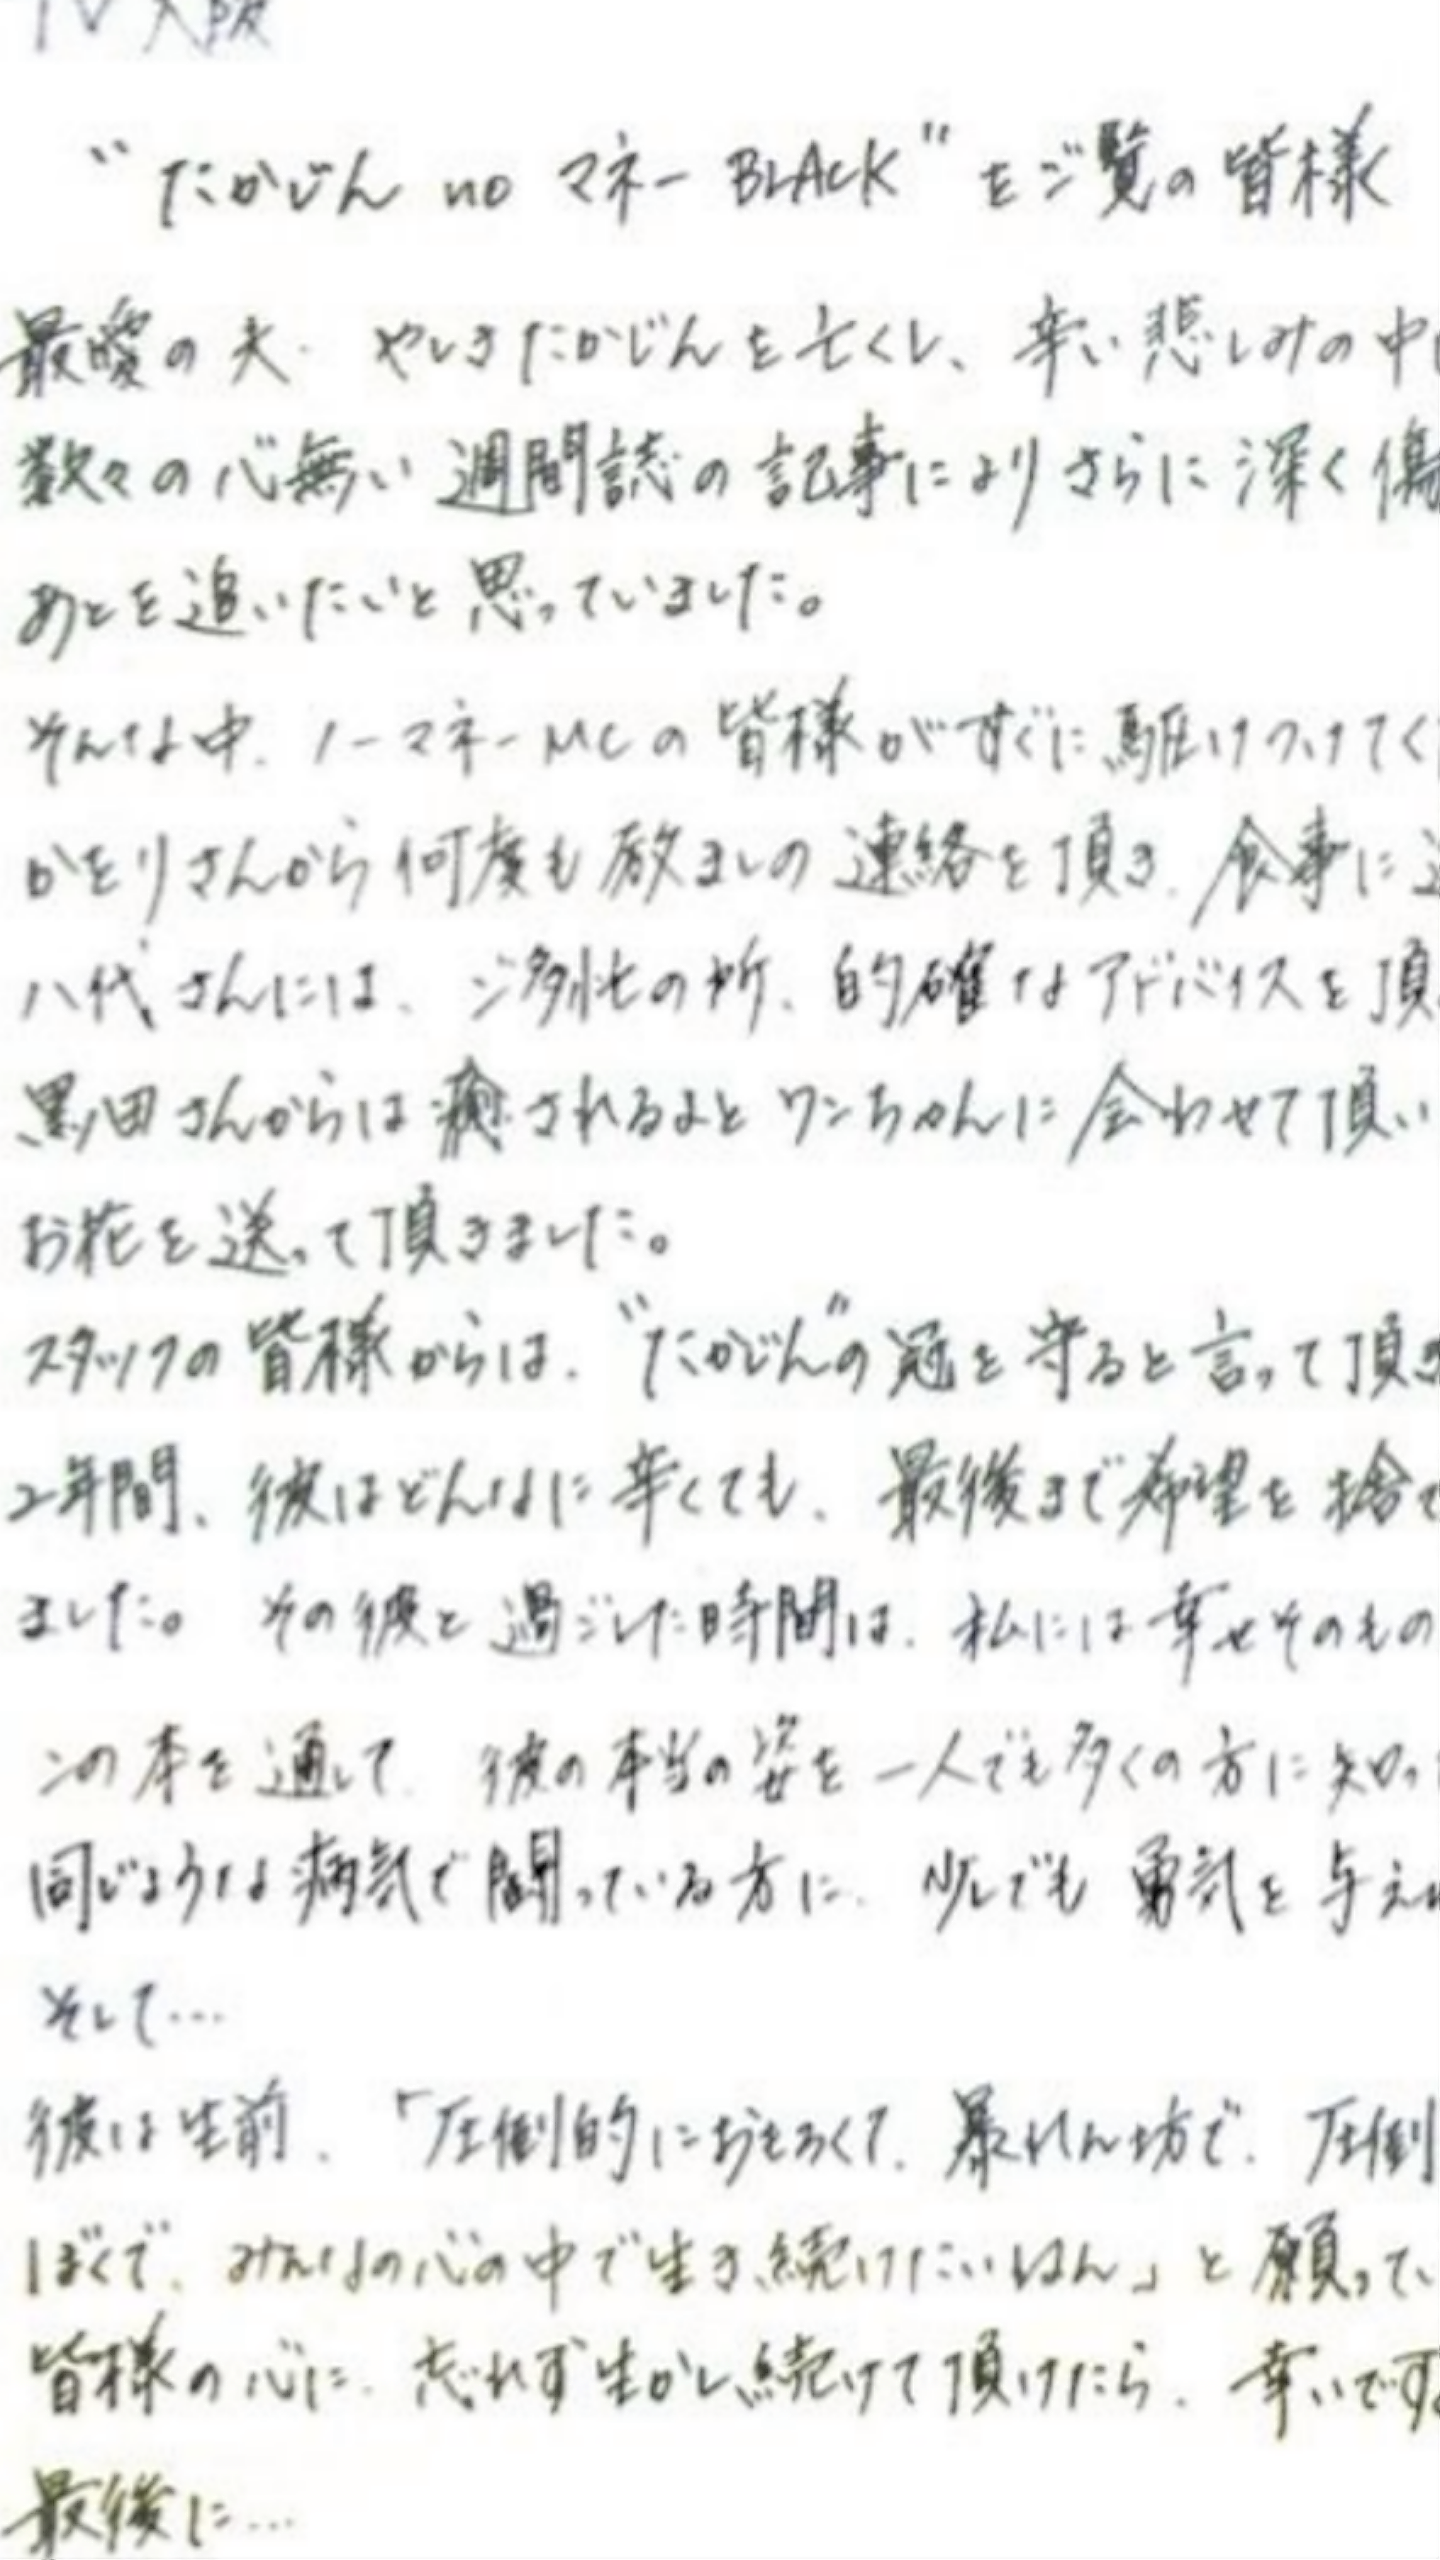 TV大阪
"たかじん no マネー BLACK"をご覧の皆様
最愛の夫、やしきたかじんを亡くし、辛い悲しみの中
数々の心無い週間誌の記事によりさらに深く傷
あとを追いたいと思っていました。
そんな中、ノーマネーMCの皆様がすぐに駆けつけてく
かをりさんから何度も励ましの連絡を頂き、食事に
八代さんには、ご多忙の所、的確なアドバイスを頂
黒田さんからは癒されるよとワンちゃんに会わせて頂い
お花を送って頂きました。
スタッフの皆様からは、"たかじん"の冠を守ると言って頂き
2年間、彼はどんなに辛くても、最後まで希望を捨て
ました。その彼と過ごした時間は、私には幸せそのもの
この本を通して、彼の本当の姿を一人でも多くの方に知っ
同じような病気で闘っている方に、少しでも勇気を与え
そして…
彼は生前、「圧倒的におもろくて、暴れん坊で、圧倒
ぼくで、みんなの心の中で生き続けたいねん」と願ってい
皆様の心に、忘れず生かし続けて頂けたら、幸いです。
最後に…